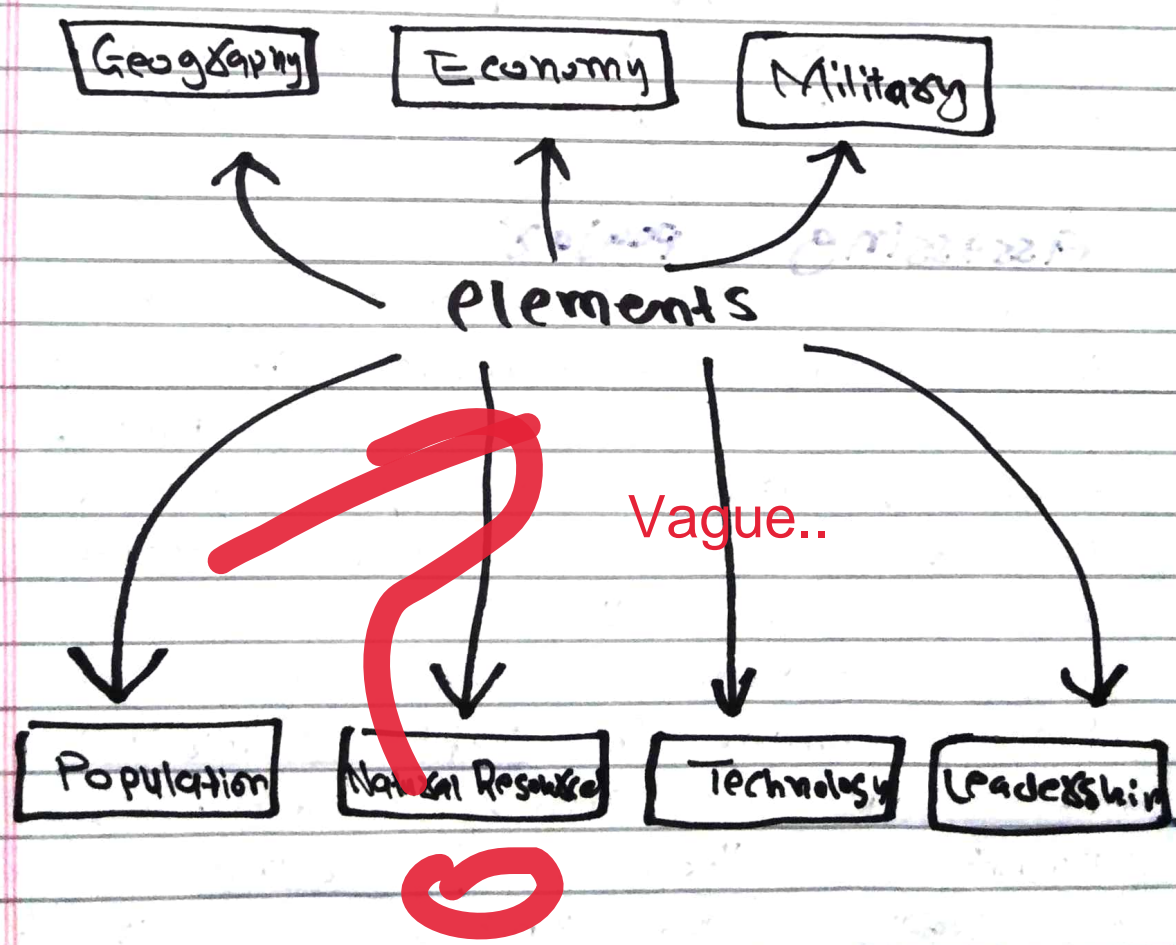 Geography
Economy
Military
elements
Vague..
Population
Natural Resource
Technology
Leadership